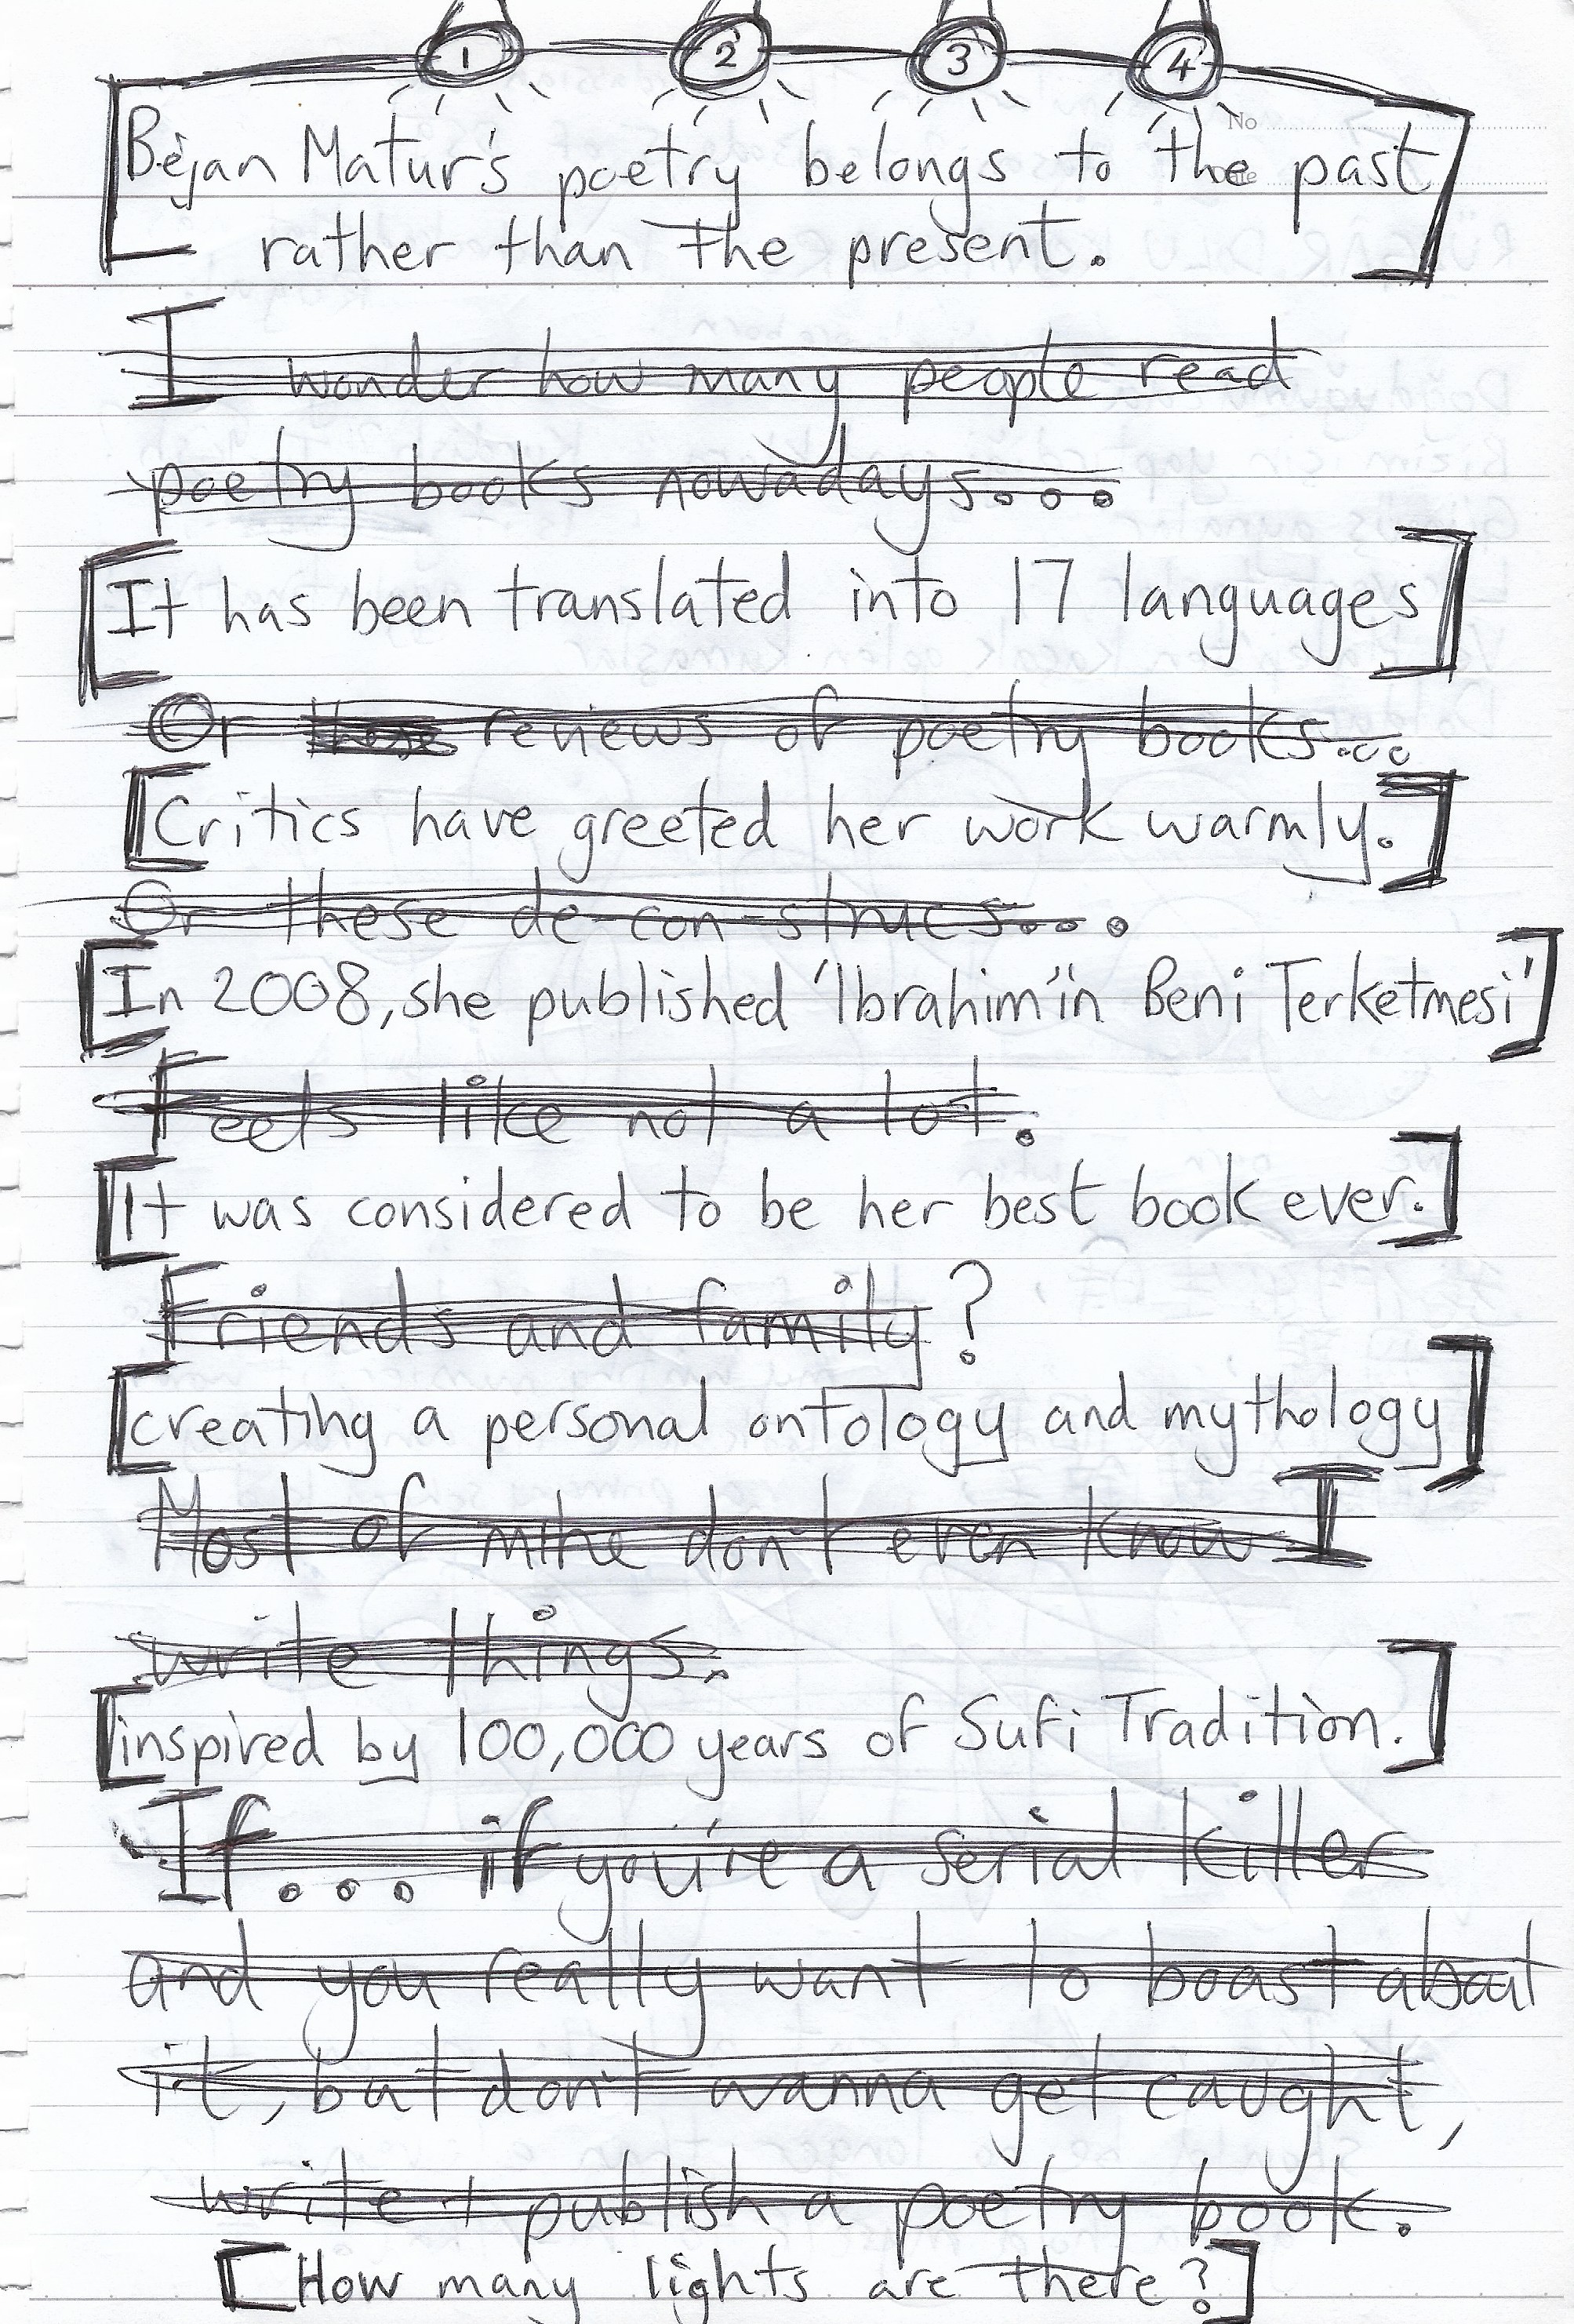 1 2 3 4
No
Date
Bejan Matur's poetry belongs to the past
rather than the present.
I wonder how many people read
poetry books nowadays...
[It has been translated into 17 languages]
Or these reviews of poetry books...
[Critics have greeted her work warmly.]
Or these de-con-strucs...
[In 2008, she published 'Ibrahim'in Beni Terketmesi']
Feels like not a lot.
[It was considered to be her best book ever.]
Friends and family?
[creating a personal ontology and mythology]
Most of mine don't even know I
write things.
[inspired by 100,000 years of Sufi Tradition.]
If... if you're a serial killer
and you really want to boast about
it, but don't wanna get caught,
write + publish a poetry book.
[How many lights are there?]